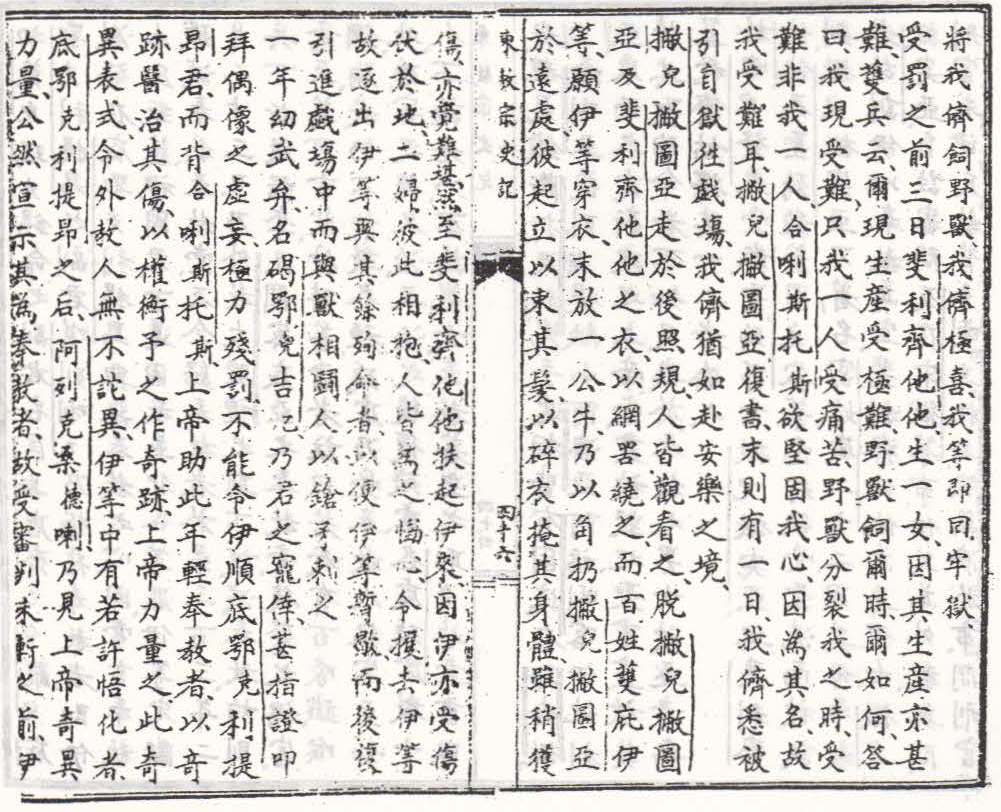 將我儕飼野獸、我儕極喜、我等即囘牢獄、
受罰之前三日、斐利齊他他生一女、因其生產亦甚
難、䕶兵云、爾現生產受極難、野獸飼爾時、爾如何、答
曰、我現受難、只我一人受痛苦、野獸分裂我之時、受
難非我一人、合唎斯托斯欲堅固我心、因為其名、故
我受難耳、撇兒撇圖亞復書、末則有一日、我儕悉被
引自獄徃戲塲、我儕猶如赴安樂之境、
撇兒撇圖亞走於後、照規、人皆觀看之、脫撇兒撇圖
亞及斐利齊他他之衣、以網罟繞之、而百姓䕶庇伊
等、願伊等穿衣、末放一公牛、乃以角扔撇兒撇圖亞
於遠處、彼起立以束其髮、以碎衣掩其身體、雖稍獲
東教宗史記
四十六
傷、亦覺難堪、然至斐利齊他他扶起伊來、因伊亦受傷
伏於地、二婦彼此相抱、人皆為之惱心、令攓去伊等
故逐出伊等與其餘殉命者、以便伊等暫歇、而後復
引進戲塲中而與獸相鬪、人以鎗矛刺之
一年幼武弁、名碣鄂兒吉乙、乃君之寵倖、甚指證叩
拜偶像之虛妄、極力殘罰、不能令伊順底鄂克利提
昂君、而背合唎斯托斯、上帝助此年輕奉教者、以竒
跡醫治其傷、以權衡予之作奇跡、上帝力量之此奇
異表式、令外教人無不詫異、伊等中有若許悟化者、
底鄂克利提昂之后、阿列克桑德喇、乃見上帝奇異
力量、公然宣示其為奉教者、故受審判、未斬之前、伊